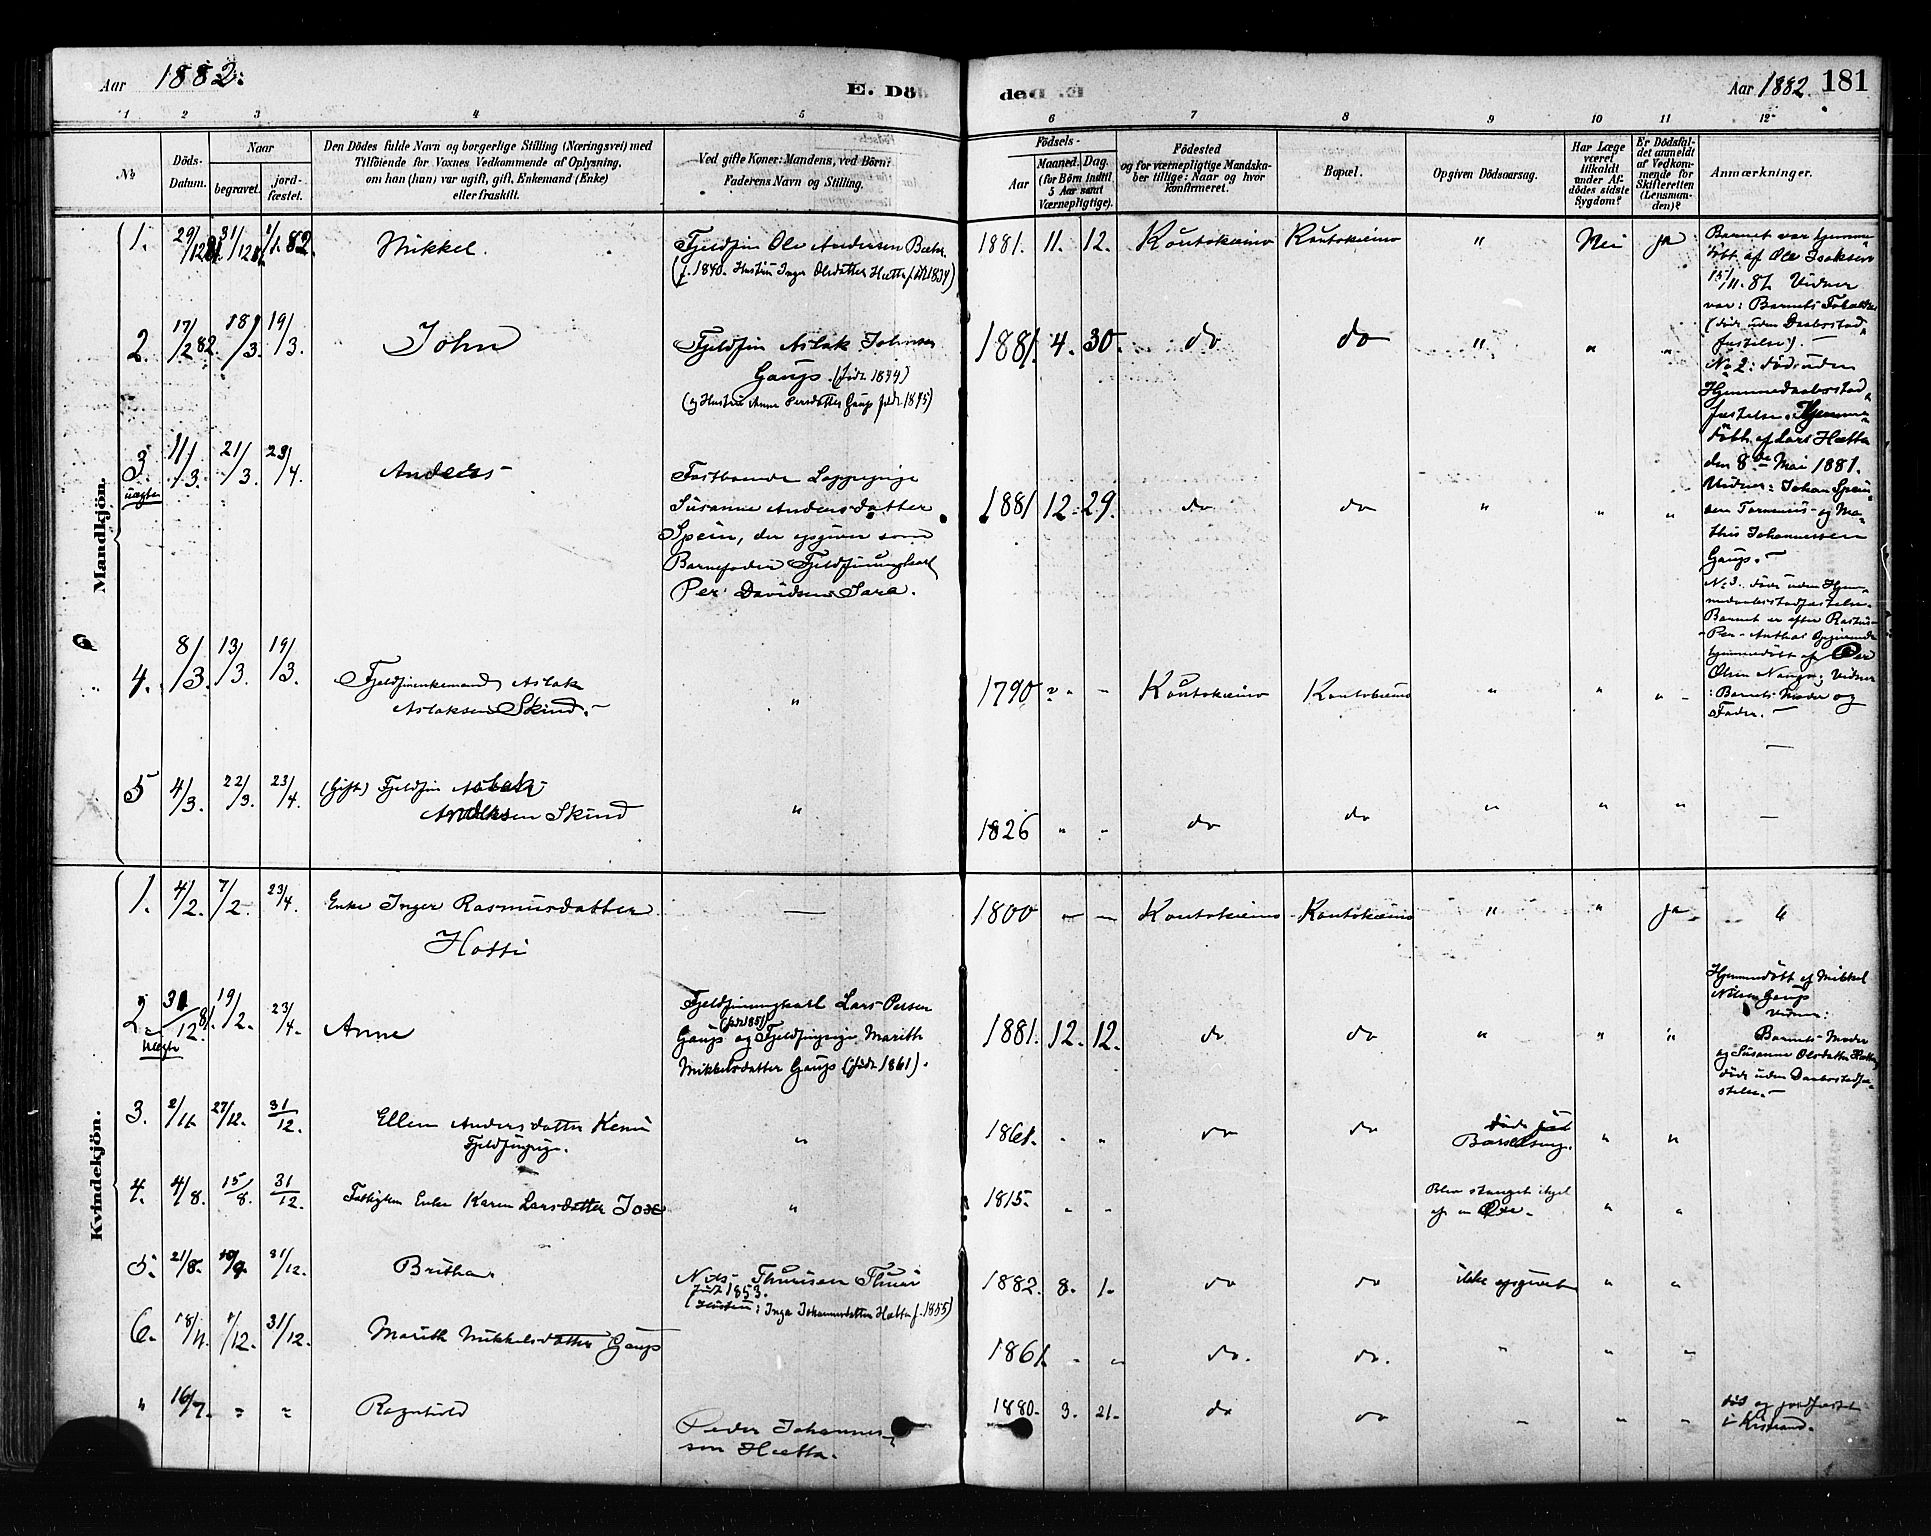 Aar 1882.
E. Dö
ded E.
Aar 1882. 181
1 2 3 4 5 6 7 8 9 10 11 12
No
Döds-Datum.
Naar
begravet.
jordfæstet.
Den Dödes fulde Navn og borgerlige Stilling (Næringsvei) med
Tilföiende for Voxnes Vedkommende af Oplysning,
om han (hun) var ugift, gift, Enkemand (Enke)
eller fraskilt.
Ved gifte Koner: Mandens, ved Börn:
Faderens Navn og Stilling.
Födsels-
Aar
Maaned. Dag.
(for Börn indtil
5 Aar samt
Værnepligtige).
Födested
og for værnepligtige Mandskaber
tillige: Naar og hvor
konfirmeret.
Bopæl.
Opgiven Dödsaarsag.
Har Læge
været
tilkaldt
under Afdödes
sidste
Sygdom?
Er Dödsfaldet
anmeldt
af Vedkommende
for
Skifteretten
(Lensmanden)?
Anmærkninger.
Mandkjön.
1. 29/12 81 31/12 81 1/1. 82. Mikkel.
Fjeldfin Ole Andersen Bæhr
(f. 1840. Hustru Inger Olsdatter Hætta f. 1834)
1881. 11. 12. Koutokeino Koutokeino " Nei ja
Barnet var hjemmedöbt
af Ole Isaksen
15/11. 81. Vidner
var: Barnets Forældre
(döde uden Daabsstadfæstelse). —
2. 17/2 82. 18/3. 19/3. John
Fjeldfin Aslak Johnsen
Gaup. (födt 1834)
(og Hustru Anne Persdatter Gaup födt 1845)
1881. 4. 30. do do " " "
No 2: Död uden
Hjemmedaabsstadfæstelse.
Hjemmedöbt
af Lars Hætta
den 8de Mai 1881.
Vidner: Johan Spein
den Tornensis og Mathis
Johannessen
Gaup. —
3. uægte 11/3. 21/3. 23/4. Anders
Fastboende Lappepige
Susanne Andersdatter
Spein, der opgiver som
Barnefader Fjeldfinungkarl
Per Davidsen Sara.
1881 12. 29. do do " " "
No 3. döde uden Hjemmedaabsstadfæstelse.
Barnet er efter Rasmus
Per Anthas Opgivende
hjemmedöbt af Per
Olsen Nango; Vidner
: Barnets Moder og
Fader. —
4. 8/3. 13/3. 19/3. Fjeldfinenkemand Aslak
Aslaksen Skind. —
"
1790 " " - Koutokeino Koutokeino " " " —
5 4/3. 22/3. 23/4. (Gift) Fjeldfin Aslak
Andersen Skind
"
1826 " " do do " " " —
Kvindekjön.
1. 4/2. 7/2. 23/4. Enke Inger Rasmusdatter
Hotti
—
1800 — — Koutokeino Koutokeino " " ja "
2. uægte 31/12 81. 19/2. 23/4. Anne
Fjeldfinungkarl Lars Persen
Gaup (födt 1851) og Fjeldfinpige Marith
Mikkelsdatter Gaup (födt 1861).
1881. 12. 12. do do " " "
Hjemmedöbt af Mikkel
Nilsen Gaup
Vidner:
Barnets Moder
og Susanne Olsdatter Hætta
döde uden Daabsstadfæstelse. —
3. 2/11. 27/12. 31/12. Ellen Andersdatter Kemi
Fjeldfinpige.
"
1861. " " do do döde paa
Barselseng. " "
4. 4/8. 15/8. 31/12. Fattiglem Enke Karen Larsdatter Jox
"
1815. " " Blev stanget ihjel
af en Oxe. " "
5. 21/8. 10/9. 31/12. Brithe
Nils Thuresen Thuri
födt 1853.
(Hustru: Inga Johannesdatter Hætta f. 1855)
1882. 8. 1. do do ikke opgivet " "
6. 18/11. 7/12. 31/12. Marith Mikkelsdatter Gaup
1861. " " do. do. " " "
" 16/7. " " Ragnhild
Peder Johannessen
Hætta.
1880. 3. 21. do do " " "
död og jordfæstet
i Kistrand.